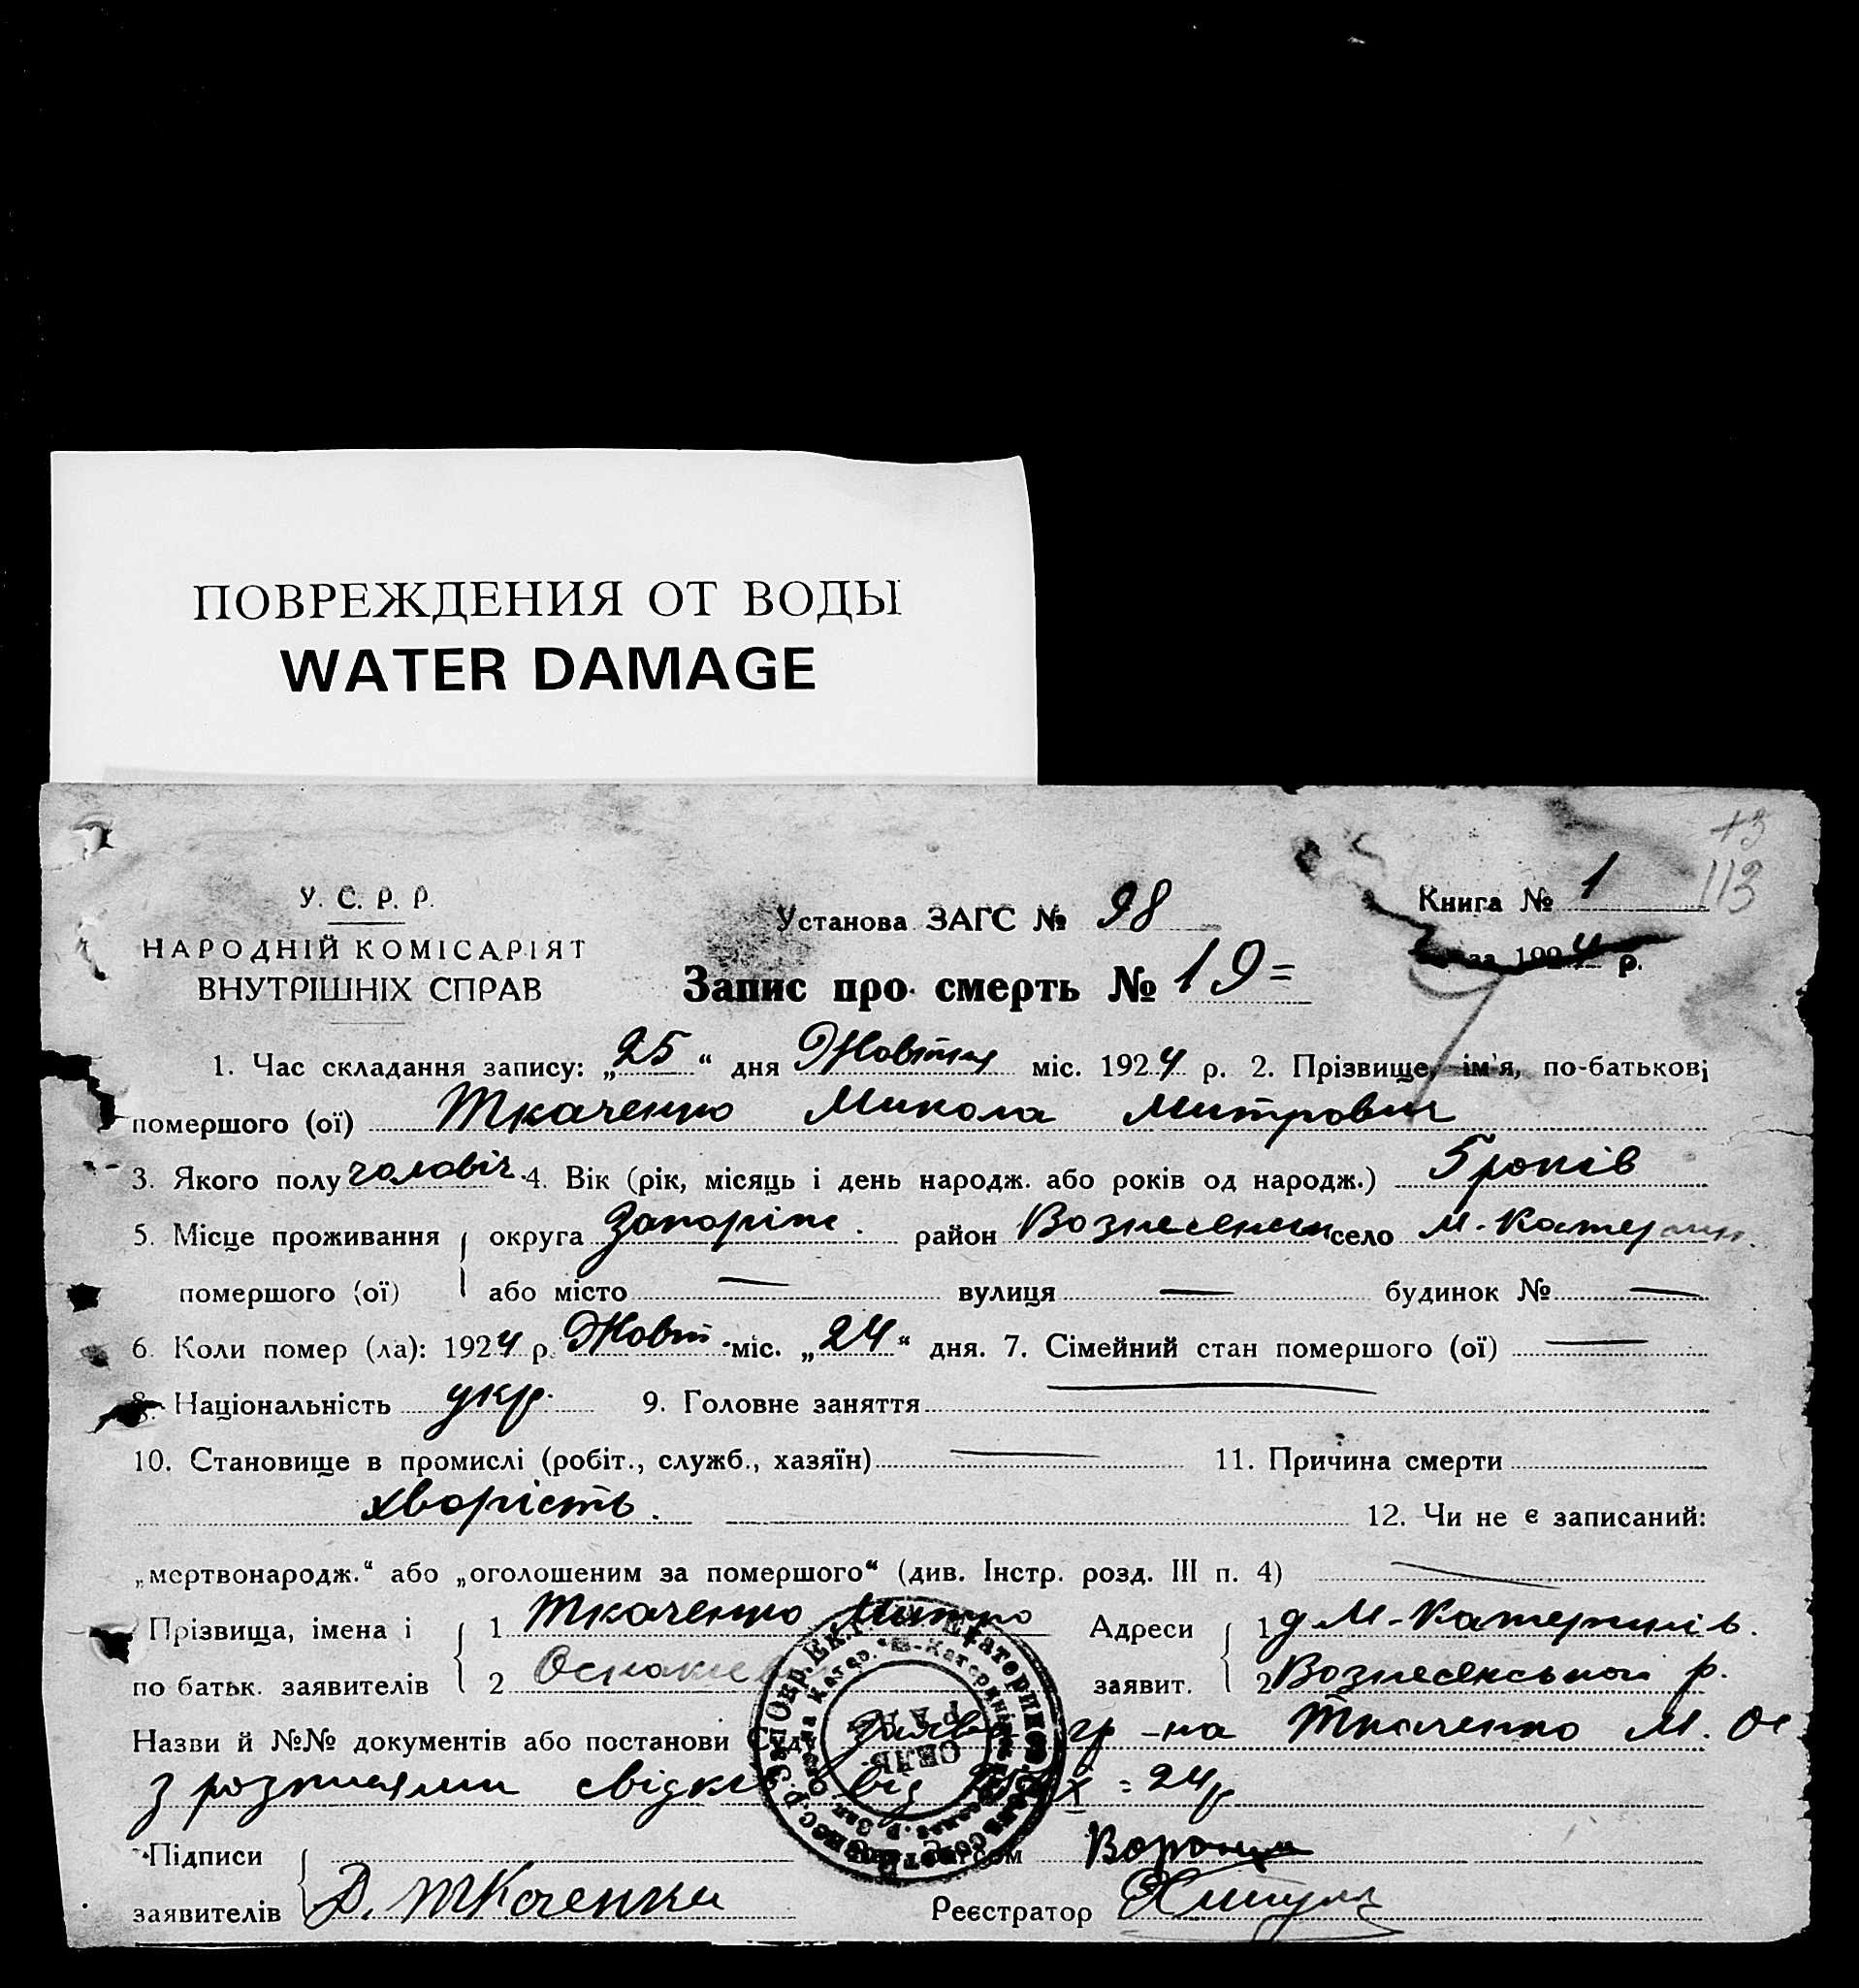 ПОВРЕЖДЕНИЯ ОТ ВОДЫ
WATER DAMAGE
13
113
У. С. Р. Р.
НАРОДНІЙ КОМІСАРІЯТ
ВНУТРІШНІХ СПРАВ
Установа ЗАГС № 98
Книга № 1
за 1924 р.
Запис про смерть № 19=
1. Час складання запису: „25“ дня Жовтня міс. 1924 р. 2. Прізвище, ім'я, по-батькові
помершого (ої) Ткаченко Микола Митрович
3. Якого полу чоловіч. 4. Вік (рік, місяць і день народж. або років од народж.) 5 років
5. Місце проживання { округа Запоріж. район Вознесенськ село М.-Катерин.
помершого (ої) або місто — вулиця — будинок № —
6. Коли помер (ла): 1924 р. Жовт. міс. „24“ дня. 7. Сімейний стан помершого (ої) —
8. Національність укр. 9. Головне заняття —
10. Становище в промислі (робіт., служб., хазяїн) — 11. Причина смерти
хворість. 12. Чи не є записаний:
„мертвонародж.“ або „оголошеним за помершого“ (див. Інстр. розд. III п. 4) —
Прізвища, імена і { 1 Ткаченко Митро Адреси { 1 д М-Катеринів.
по батьк. заявителів 2 заявит. 2 Вознесенської р.
Назви й №№ документів або постанови Суду Заява гр-на Ткаченко М. Ос
з розписями свідків від X = 24р
Підписи
заявителів { Д. Ткаченко
Реєстратор